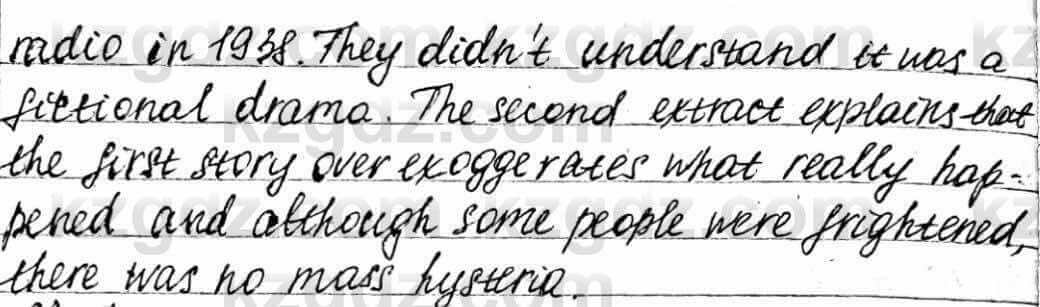 radio in 1938. They didn't understand it was a
fictional drama. The second extract explains that
the first story over exoggerates what really hap-
pened and although some people were frightened,
there was no mass hysteria.